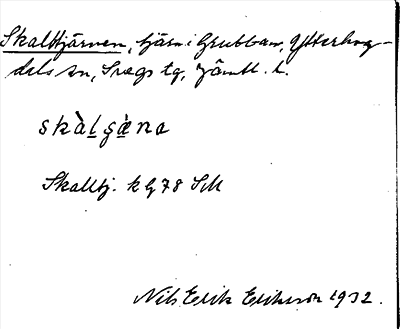 Skalltjärnen, tjärn i Grubban, Ytterhog-
dals sn, Svegs tg, Jämtl. l.
skàlgæ̀na
Skalltj. k G 78 SM
Nils Erik Eriksson 1932.